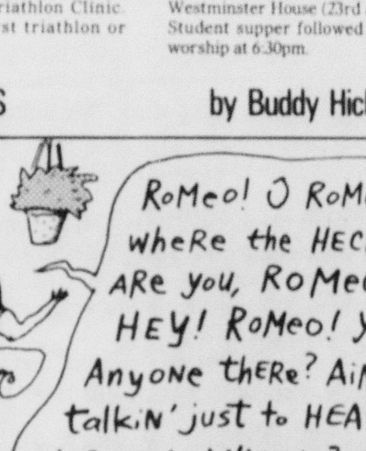 riathlon Clinic.
st triathlon or
Westminster House (23rd
Student supper followed
worship at 6:30pm.
S
by Buddy Hic
RoMeo! O RoM
wheRe the HEC
ARe you, RoMeo
HEY! RoMeo! Y
AnyoNe thERe? Ai
talkiN' just to HEA